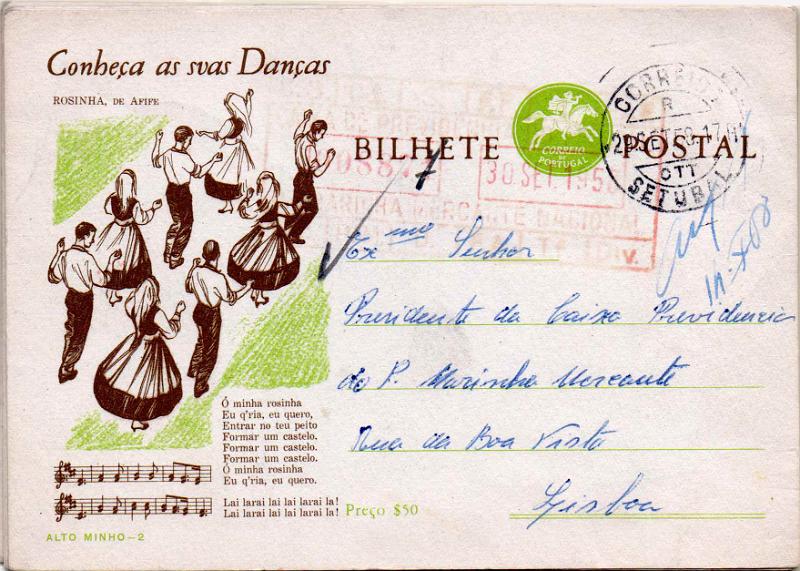 Conheça as svas Danças
ROSINHA, DE AFIFE
BILHETE POSTAL
CORREIO
DE
PORTUGAL
CORREIOS
R
29 SET 58 17 H
CTT
SETUBAL
0887
30 SET. 1958
MARINHA MERCANTE NACIONAL
1ª DIV.
Exmo Senhor
Presidente da Caixa Previdencia
do P. Marinha Mercante
Rua da Boa Vista
Lisboa
Ó minha rosinha
Eu q'ria, eu quero,
Entrar no teu peito
Formar um castelo.
Formar um castelo.
Formar um castelo.
Ó minha rosinha
Eu q'ria, eu quero.
Lai larai lai lai larai la!
Lai larai lai lai larai la!
Preço $50
ALTO MINHO—2